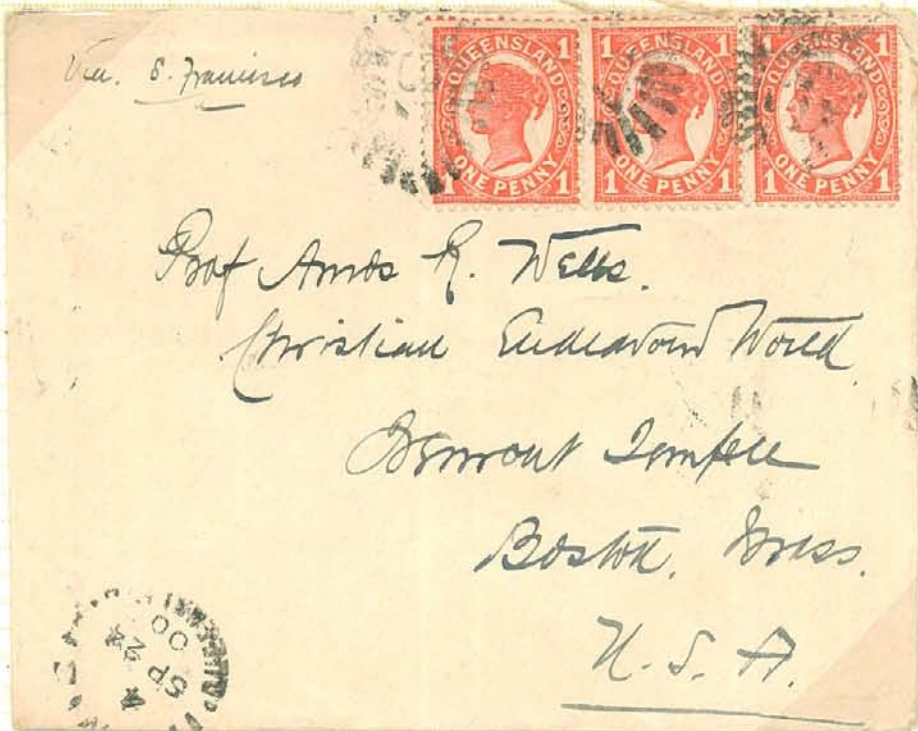 Via. S. Francisco
1 QUEENSLAND 1
1 ONE PENNY 1
1 QUEENSLAND 1
1 ONE PENNY 1
1 QUEENSLAND 1
1 ONE PENNY 1
Prof Amos R. Wells.
Christian Endeavour World
Temple
Boston, Mass.
U. S. A.
SP 24
00